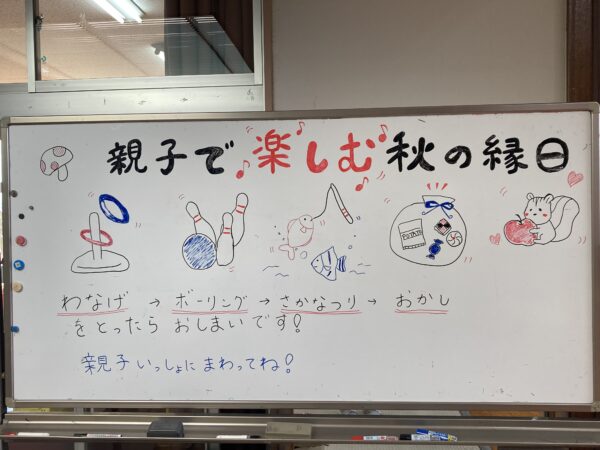 親子で楽しむ秋の縁日
POTATO
わなげ → ボーリング → さかなつり → おかし
をとったら おしまいです!
親子いっしょにまわってね!